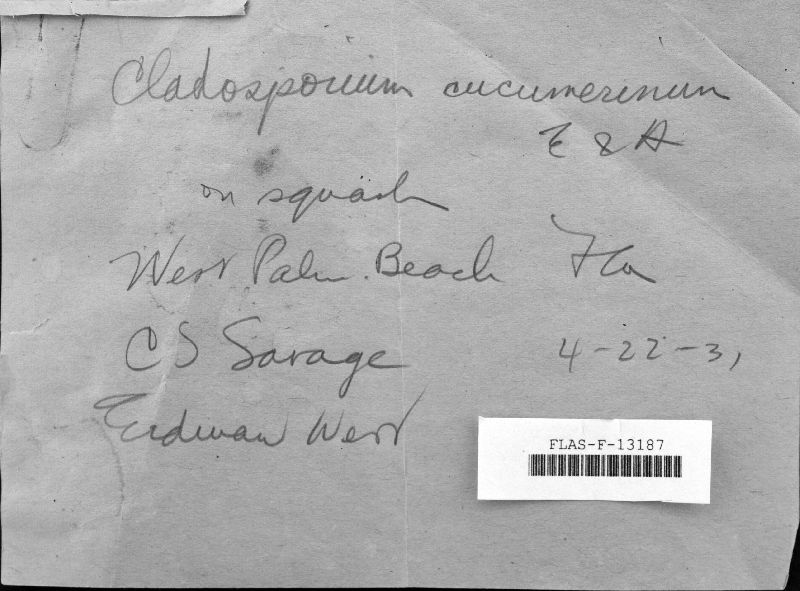 Cladosporium cucumerinum
E & A
on squash
West Palm Beach Fla
CS Savage 4-22-31
Erdman West
FLAS-F-13187